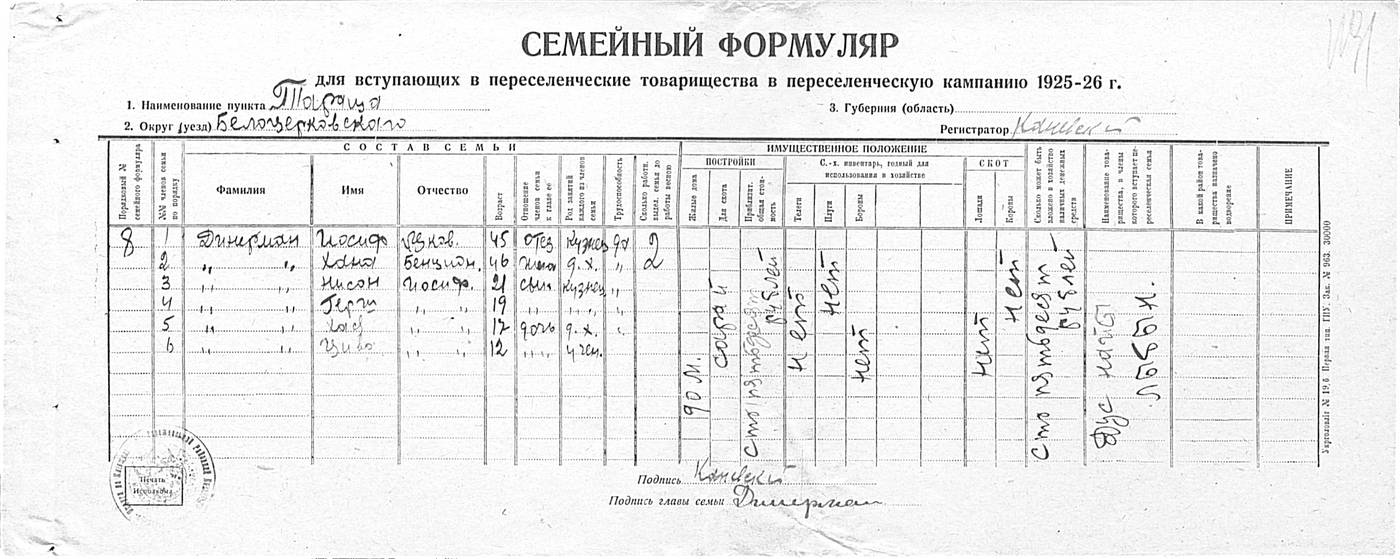 СЕМЕЙНЫЙ ФОРМУЛЯР
для вступающих в переселенческие товарищества в переселенческую кампанию 1925-26 г.
1. Наименование пункта Тараща
3. Губерния (область)
2. Округ (уезд) Белоцерковского
Регистратор Каневский
СОСТАВ СЕМЬИ
ИМУЩЕСТВЕННОЕ ПОЛОЖЕНИЕ
ПОСТРОЙКИ
С.-х. инвентарь, годный для использования в хозяйстве
СКОТ
Порядковый № семейного формуляра
№№ членов семьи по порядку
Фамилия
Имя
Отчество
Возраст
Отношение членов семьи к главе ее
Род занятий каждого из членов семьи
Трудоспособность
Сколько работн. выдел. семья до работы весною
Жилые дома
Для скота
Приблизит. общая стоимость
Телеги
Плуги
Бороны
Лошади
Коровы
Сколько может быть вложено в хозяйство наличных денежных средств
Наименование товарищества, в члены которого вступает переселенческая семья
В какой район товарищества назначено водворение
ПРИМЕЧАНИЕ
8 1 Динерман Иосиф 45 отец Кузнец да 2
2 „ „ Хана Бенцион. 46 жена д. х. „ 2
3 „ „ Нисон Иосиф. 21 сын Кузнец „
4 „ „ Герш „ „ 19 „ „ „ „ „
5 „ „ „ „ 17 дочь д. х. „
6 „ „ „ „ 12 „ „ учен.
дом.
сарай
сто пятьдесят рублей
нет
нет
нет
нет
нет
сто пятьдесят рублей
Дус найе лыбын.
Подпись Каневский
Подпись главы семьи Динерман
Печать Исполкома
Укрголовліт № 19,6 Перша тип. ГПУ. Зак. № 963. 30000